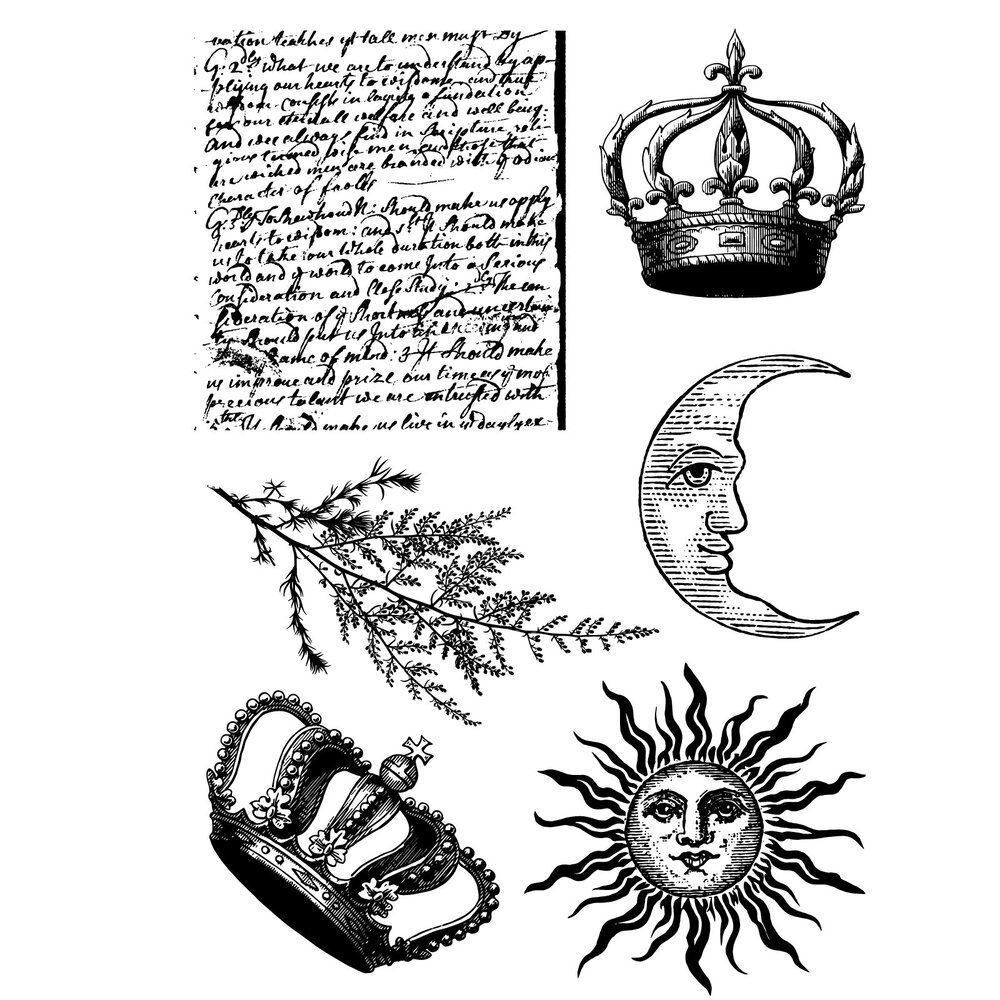 teaches yt all men must by
G: 2dly what we are to understand by ap-
plying our hearts to wisdome. and that
wisdom consists in laying a fundation
for our eternall welfare and well being.
And wee always find in Scripture reli-
gious termed wise men and those that
are wicked men are branded with ye odious
character of fooles
G: 3dly should make us apply
hearts to wisdom: and 1st It should make
us to take our whole duration both in this
world and ye world to come Into a Serious
Consideration and Close Study: 2dly The con
sideration of ye Shortness and uncertain
ty should put us Into and
frame of mind: 3 It Should make
us improve and prize our time as ye most
precious talant we are intrusted with
make us live in